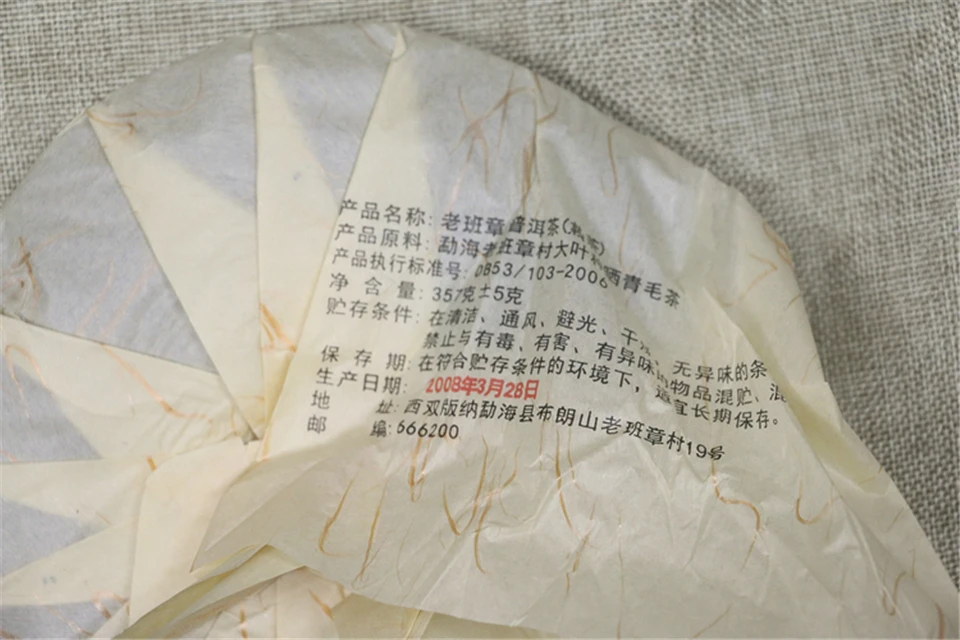 产品名称：老班章普洱茶(
产品原料：勐海老班章村大叶 晒青毛茶
产品执行标准号：DB53/103-2006
净含量：357克±5克
贮存条件：在清洁、通风、避光、干 、无异味的条
禁止与有毒、有害、有异味 物品混贮、混
保存期：在符合贮存条件的环境下，适宜长期保存。
生产日期：2008年3月28日
地址：西双版纳勐海县布朗山老班章村19号
邮编：666200